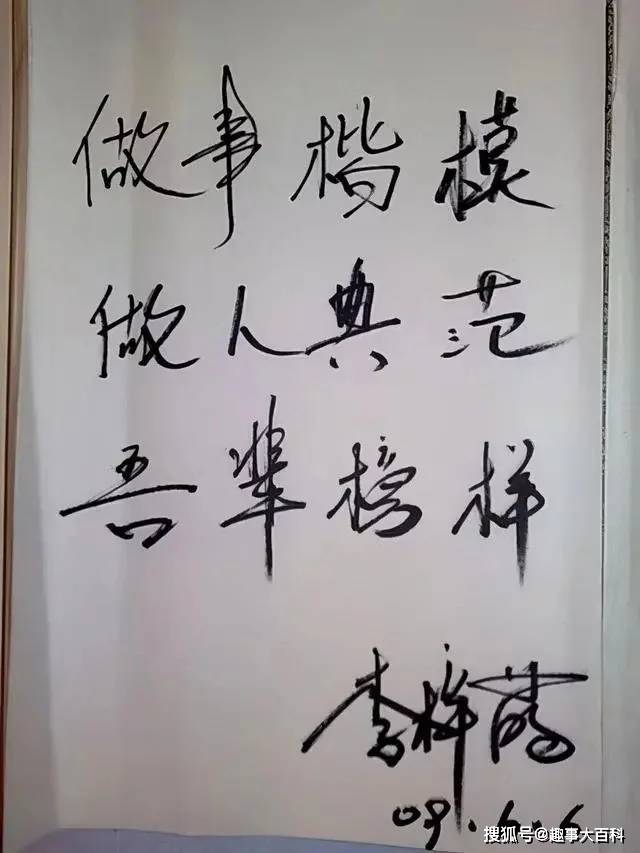 做事楷模
做人典范
吾辈榜样
李梓萌
09.6.6
搜狐号@趣事大百科